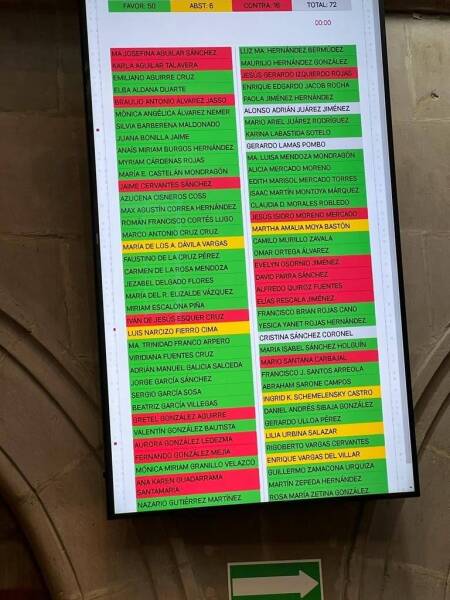 FAVOR: 50 ABST: 6 CONTRA: 16 TOTAL: 72
00:00
MA JOSEFINA AGUILAR SÁNCHEZ
KARLA AGUILAR TALAVERA
EMILIANO AGUIRRE CRUZ
ELBA ALDANA DUARTE
BRAULIO ANTONIO ÁLVAREZ JASSO
MÓNICA ANGÉLICA ÁLVAREZ NEMER
SILVIA BARBERENA MALDONADO
JUANA BONILLA JAIME
ANAÍS MIRIAM BURGOS HERNÁNDEZ
MYRIAM CÁRDENAS ROJAS
MARÍA E. CASTELÁN MONDRAGÓN
JAIME CERVANTES SÁNCHEZ
AZUCENA CISNEROS COSS
MAX AGUSTÍN CORREA HERNÁNDEZ
ROMÁN FRANCISCO CORTÉS LUGO
MARCO ANTONIO CRUZ CRUZ
MARÍA DE LOS A. DÁVILA VARGAS
FAUSTINO DE LA CRUZ PÉREZ
CARMEN DE LA ROSA MENDOZA
JEZABEL DELGADO FLORES
MARÍA DEL R. ELIZALDE VÁZQUEZ
MIRIAM ESCALONA PIÑA
IVÁN DE JESÚS ESQUER CRUZ
LUIS NARCIZO FIERRO CIMA
MA. TRINIDAD FRANCO ARPERO
VIRIDIANA FUENTES CRUZ
ADRIÁN MANUEL GALICIA SALCEDA
JORGE GARCÍA SÁNCHEZ
SERGIO GARCÍA SOSA
BEATRIZ GARCÍA VILLEGAS
GRETEL GONZÁLEZ AGUIRRE
VALENTÍN GONZÁLEZ BAUTISTA
AURORA GONZÁLEZ LEDEZMA
FERNANDO GONZÁLEZ MEJÍA
MÓNICA MIRIAM GRANILLO VELAZCO
ANA KAREN GUADARRAMA
SANTAMARÍA
NAZARIO GUTIÉRREZ MARTÍNEZ
LUZ MA. HERNÁNDEZ BERMÚDEZ
MAURILIO HERNÁNDEZ GONZÁLEZ
JESÚS GERARDO IZQUIERDO ROJAS
ENRIQUE EDGARDO JACOB ROCHA
PAOLA JIMÉNEZ HERNÁNDEZ
ALONSO ADRIÁN JUÁREZ JIMÉNEZ
MARIO ARIEL JUÁREZ RODRÍGUEZ
KARINA LABASTIDA SOTELO
GERARDO LAMAS POMBO
MA. LUISA MENDOZA MONDRAGÓN
ALICIA MERCADO MORENO
EDITH MARISOL MERCADO TORRES
ISAAC MARTÍN MONTOYA MÁRQUEZ
CLAUDIA D. MORALES ROBLEDO
JESÚS ISIDRO MORENO MERCADO
MARTHA AMALIA MOYA BASTÓN
CAMILO MURILLO ZAVALA
OMAR ORTEGA ÁLVAREZ
EVELYN OSORNIO JIMÉNEZ
DAVID PARRA SÁNCHEZ
ALFREDO QUIROZ FUENTES
ELÍAS RESCALA JIMÉNEZ
FRANCISCO BRIAN ROJAS CANO
YESICA YANET ROJAS HERNÁNDEZ
CRISTINA SÁNCHEZ CORONEL
MARIA ISABEL SÁNCHEZ HOLGUÍN
MARIO SANTANA CARBAJAL
FRANCISCO J. SANTOS ARREOLA
ABRAHAM SARONE CAMPOS
INGRID K. SCHEMELENSKY CASTRO
DANIEL ANDRÉS SIBAJA GONZÁLEZ
GERARDO ULLOA PÉREZ
LILIA URBINA SALAZAR
RIGOBERTO VARGAS CERVANTES
ENRIQUE VARGAS DEL VILLAR
GUILLERMO ZAMACONA URQUIZA
MARTÍN ZEPEDA HERNÁNDEZ
ROSA MARÍA ZETINA GONZÁLEZ